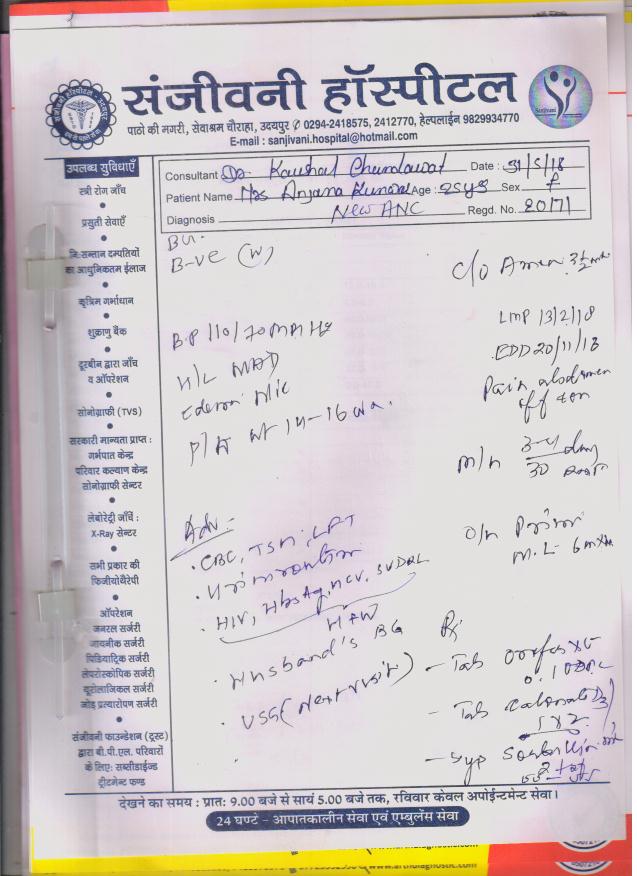 संजीवनी हॉस्पीटल
पाठो की मगरी, सेवाश्रम चौराहा, उदयपुर ✆ 0294-2418575, 2412770, हेल्पलाईन 9829934770
E-mail : sanjivani.hospital@hotmail.com
Sanjivani
उपलब्ध सुविधाएँ
स्त्री रोग जाँच
प्रसुती सेवाएँ
नि:सन्तान दम्पतियों
का आधुनिकतम ईलाज
कृत्रिम गर्भाधान
शुक्राणु बैंक
दूरबीन द्वारा जाँच
व ऑपरेशन
सोनोग्राफी (TVS)
सरकारी मान्यता प्राप्त :
गर्भपात केन्द्र
परिवार कल्याण केन्द्र
सोनोग्राफी सेन्टर
लेबोरेट्री जाँचें :
X-Ray सेन्टर
सभी प्रकार की
फिजीयोथैरेपी
ऑपरेशन
जनरल सर्जरी
गायनीक सर्जरी
पिडियाट्रिक सर्जरी
लेपरोस्कोपिक सर्जरी
यूरोलाजिकल सर्जरी
जोड़ प्रत्यारोपण सर्जरी
संजीवनी फाउन्डेशन (ट्रस्ट)
द्वारा बी.पी.एल. परिवारों
के लिए: सब्सीडाईज्ड
ट्रीटमेन्ट फण्ड
Consultant Dr. Kaushal Chundawat Date : 31/5/18
Patient Name Mrs Anjana Kunwar Age : 25yrs Sex F
Diagnosis New ANC Regd. No. 20171
B-ve (W)
C/o Amen 3½
B.P 110/70 mm Hg
LMP 13/2/18
EDD 20/11/18
Edema Nil
Pain abdomen
off & on
P/A ut 14-16 wk.
M/H 3-4 day
30
O/H Primi
M.L - 6 mth
Adv :-
. CBC, TSH, LFT
. Urin routin
. HIV, HbsAg, HCV, SVDRL
. Husband's BG
. USG (Next visit)
Rx
- Tab
- Tab
- Syp
देखने का समय : प्रात: 9.00 बजे से सायं 5.00 बजे तक, रविवार केवल अपोईन्टमेन्ट सेवा।
24 घण्टे - आपातकालीन सेवा एवं एम्बुलेंस सेवा